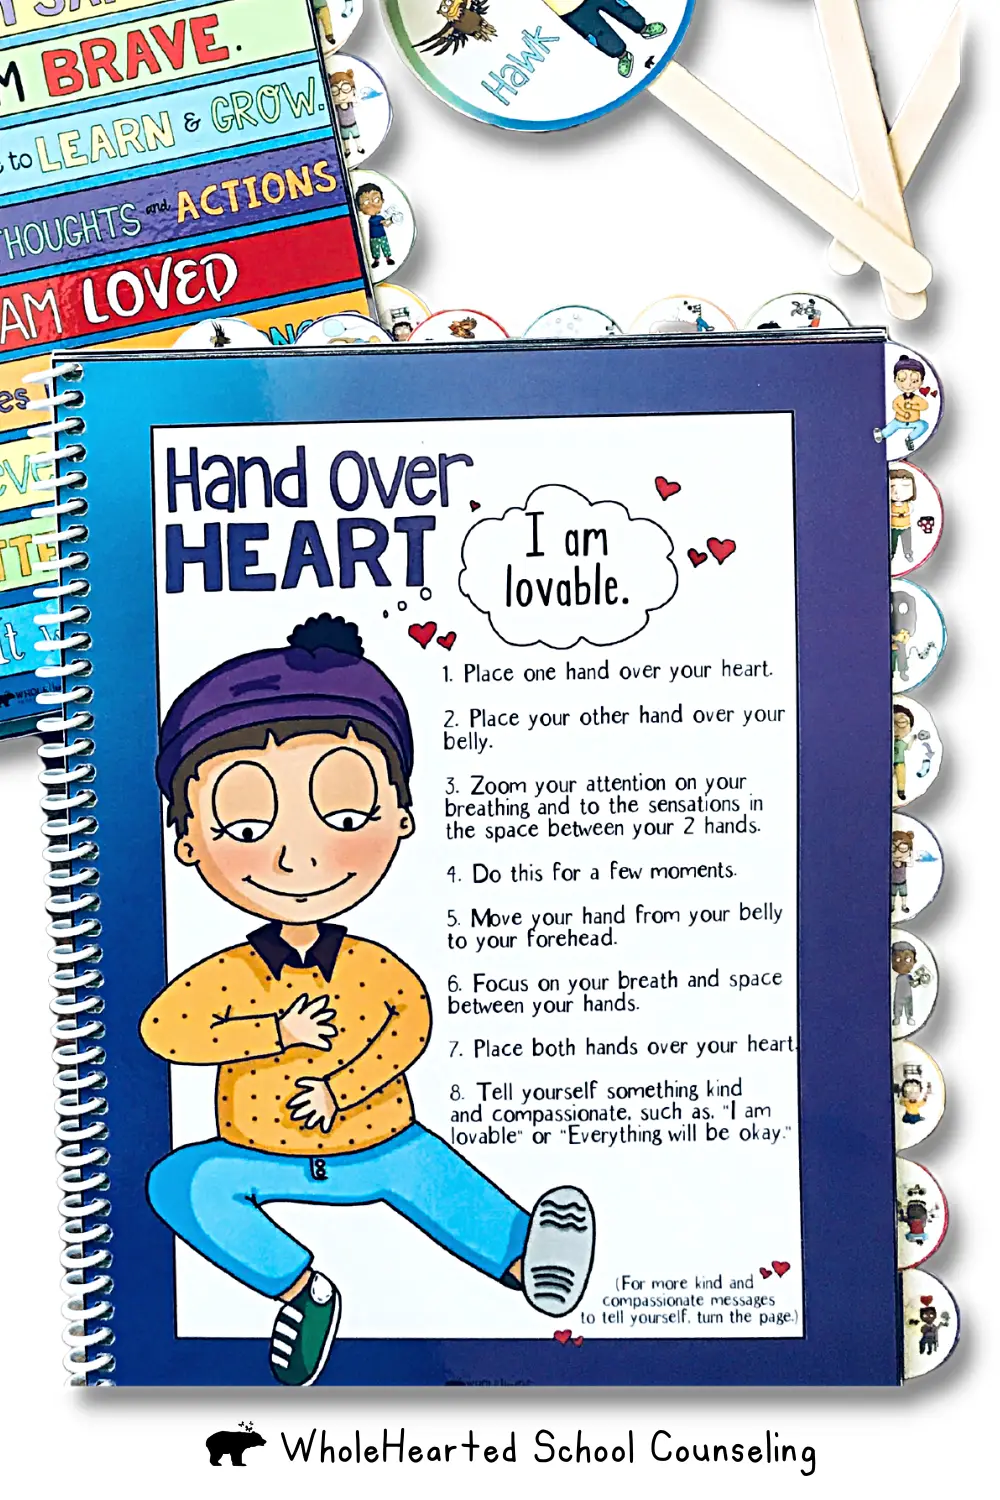 M BRAVE.
to LEARN & GROW.
THOUGHTS and ACTIONS
AM LOVED
Hawk
Hand Over
HEART
I am
lovable.
1. Place one hand over your heart.
2. Place your other hand over your
belly.
3. Zoom your attention on your
breathing and to the sensations in
the space between your 2 hands.
4. Do this for a few moments.
5. Move your hand from your belly
to your forehead.
6. Focus on your breath and space
between your hands.
7. Place both hands over your heart.
8. Tell yourself something kind
and compassionate, such as, "I am
lovable" or "Everything will be okay."
(For more kind and
compassionate messages
to tell yourself, turn the page.)
WholeHearted School Counseling